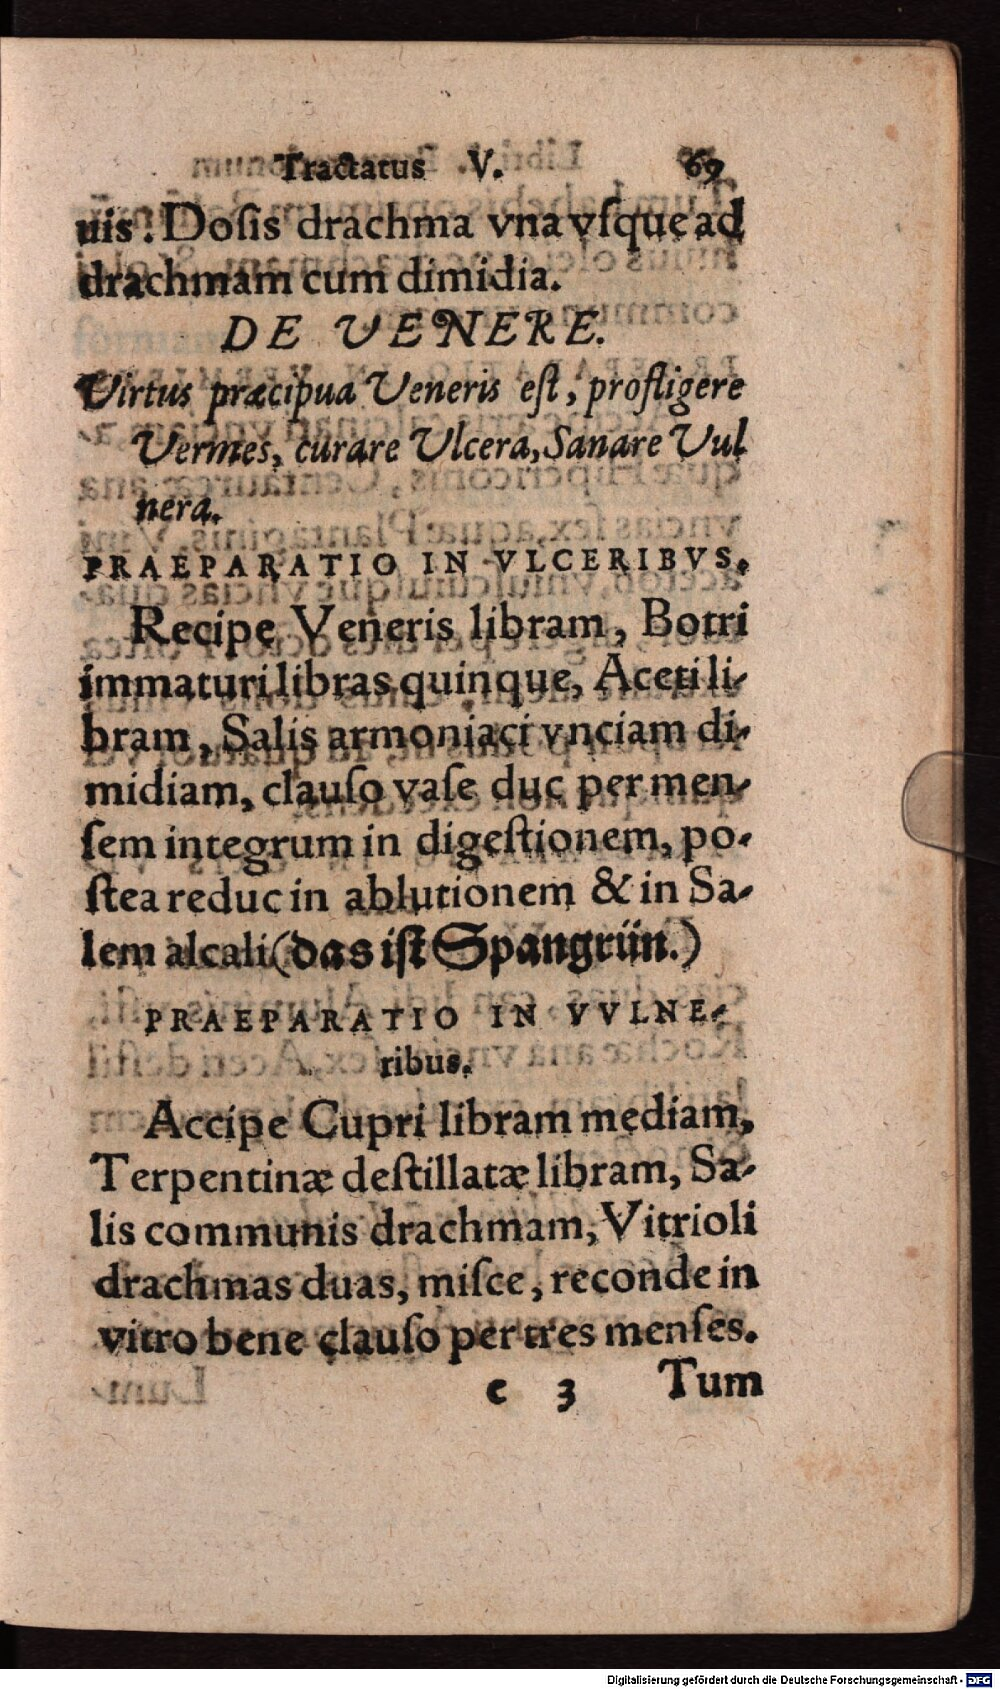 Tractatus V. 69
uis. Dosis drachma vna vſque ad
drachmam cum dimidia.
DE VENERE.
Virtus præcipua Veneris eſt, profligere
Vermes, curare Ulcera, Sanare Vul
nera.
PRAEPARATIO IN VLCERIBVS.
Recipe Veneris libram, Botri
immaturi libras quinque, Aceti li-
bram, Salis armoniaci vnciam di-
midiam, clauſo vaſe duc per men-
ſem integrum in digeſtionem, po-
ſtea reduc in ablutionem & in Sa-
lem alcali (das iſt Spangrün.)
PRAEPARATIO IN VVLNE-
ribus.
Accipe Cupri libram mediam,
Terpentinæ deſtillatæ libram, Sa-
lis communis drachmam, Vitrioli
drachmas duas, miſce, reconde in
vitro bene clauſo per tres menſes.
c 3 Tum
Digitalisierung gefördert durch die Deutsche Forschungsgemeinschaft - DFG